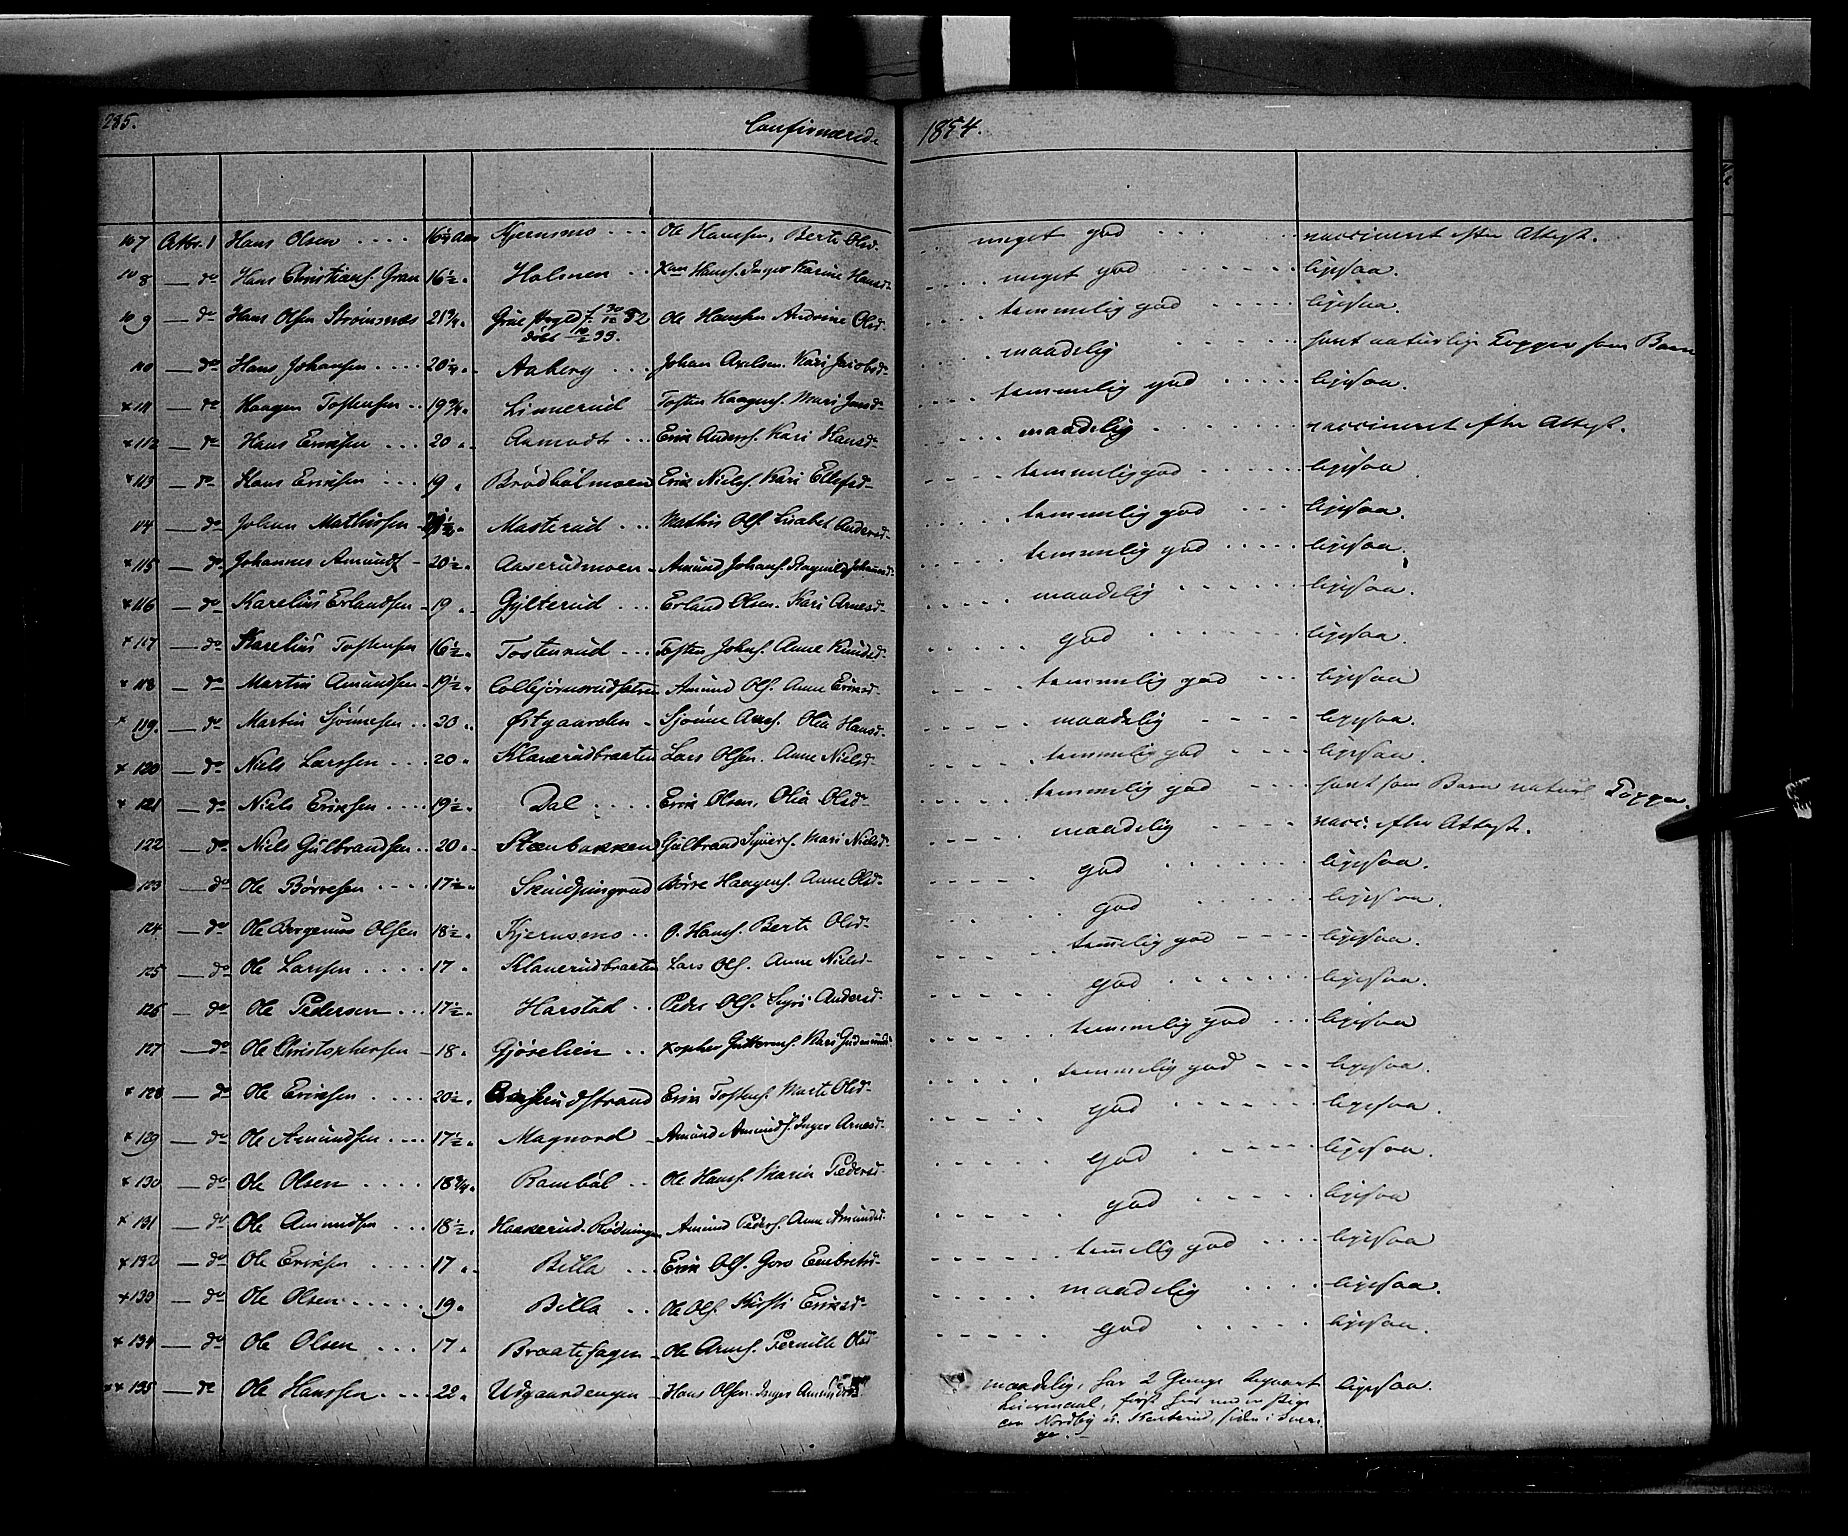 285. Confirmerede 1854.
107 Octbr. 1 Hans Olsen 16 3/4 Aar Kjernsmo Ole Hanssen, Berte Olsd. meget god vaccineret efter Attest.
108 do Hans Christians. Gran 16 1/2 Holmen Xan Hans. Inger Karine Hansd. meget god ligesaa.
109 do Hans Olsen Strömsnæs 21 3/4 Grue Ole Hansen Andrine Olsd. temmelig god ligesaa.
döbt
110 do Hans Johansen 20 1/4 Aaberg Johan Axelsen Kari Jacobsd. maadelig havt naturlige Kopper som Barn
x 111 do Haagen Tostensen 19 3/4 Linnerud Tosten Haagens. Mari Jensd. temmelig god ligesaa.
x 112 do Hans Eriksen 20 Aamodt Erik Anders. Kari Hansd. maadelig vaccineret efter Attest.
x 113 do Hans Eriksen 19 Brödbölmoen Erik Niels. Kari Ellefsd. temmelig god ligesaa.
114 do Johan Mathissen Masterud Mathis Ols. Lisabet Andersd. temmelig god ligesaa.
x 115 do Johannes Amunds. 20 1/2 Aaserudmoen Amund Johans. Ragnild Johannesd. temmelig god ligesaa.
x 116 do Karelius Erlandsen 19 Gylterud Erland Olsen Kari Arnesd. maadelig ligesaa.
x 117 do Karelius Tostensen 16 1/2 Tostenrud Tosten Johns. Anne Knudsd. god ligesaa.
x 118 do Martin Amundsen 19 1/2 Collbjörnsrudsetren Amund Ols. Anne Eriksd. temmelig god ligesaa
x 119. do Martin Sjönnesen 20 Østgaarden Sjönne Arnes. Olia Hansd. maadelig ligesaa.
x 120 do Niels Larssen 20 Klanerudbraaten Lars Olsen. Anne Nielsd. temmelig god ligesaa.
x 121 do Niels Eriksen 19 1/2 Dal Erik Olsen, Olia Olsd. temmelig god havt som Barn naturl. Kopper.
122 do Niels Gulbrandsen 20 Steenbakken Gulbrand Syvers. Mari Nielsd. maadelig vacc. efter Attest.
123 do Ole Börresen 17 1/2 Börre Haagens. Anne Olsd. god ligesaa.
124 do Ole Bergenus Olsen 18 1/2 Kjernsmo O. Hans. Berte Olsd. god ligesaa.
125 do Ole Larssen 17 Klanerudbraaten Lars Ols. Anne Nielsd. temelig god ligesaa.
126 do Ole Pedersen 17 1/2 Harstad Peder Ols. Sigri Andersd. god ligesaa.
127 do Ole Christophersen 18 Gjöselien Xopher Guttorms. Kari Gudmundsd. temmelig god ligesaa
x 128 do Ole Eriksen 20 1/2 Erik Tostens. Marte Olsd. temmelig god ligesaa.
x 129 do Ole Amundsen 17 1/2 Magnord Amund Amunds. Inger Arnesd. god ligesaa.
x 130 do Ole Olsen 18 3/4 Bomböl Ole Hans. Maria Pedersd. god ligesaa.
x 131 do Ole Amundsen 18 1/2 Haakerud-Rödningen Amund Peders. Anne Amundsd. god ligesaa
x 132 do Ole Eriksen 17 Billa Erik Ols. Goro Embretsd. temelig god ligesaa
x 133 do Ole Olsen 19 Billa Ole Ols. Kirsti Eriksd. maadelig ligesaa.
x 134 do Ole Olsen 17 Braatehagen Ole Arnes. Pernille Olsd. god ligesaa.
x x 135 do Ole Hanssen 22 Udgaardengen Hans Olsen Inger Amundsd. maadelig, har 2 Gange begaaet ligesaa.
Leiermaal, först med en Pige
Nordby siden i Sveri
ge.